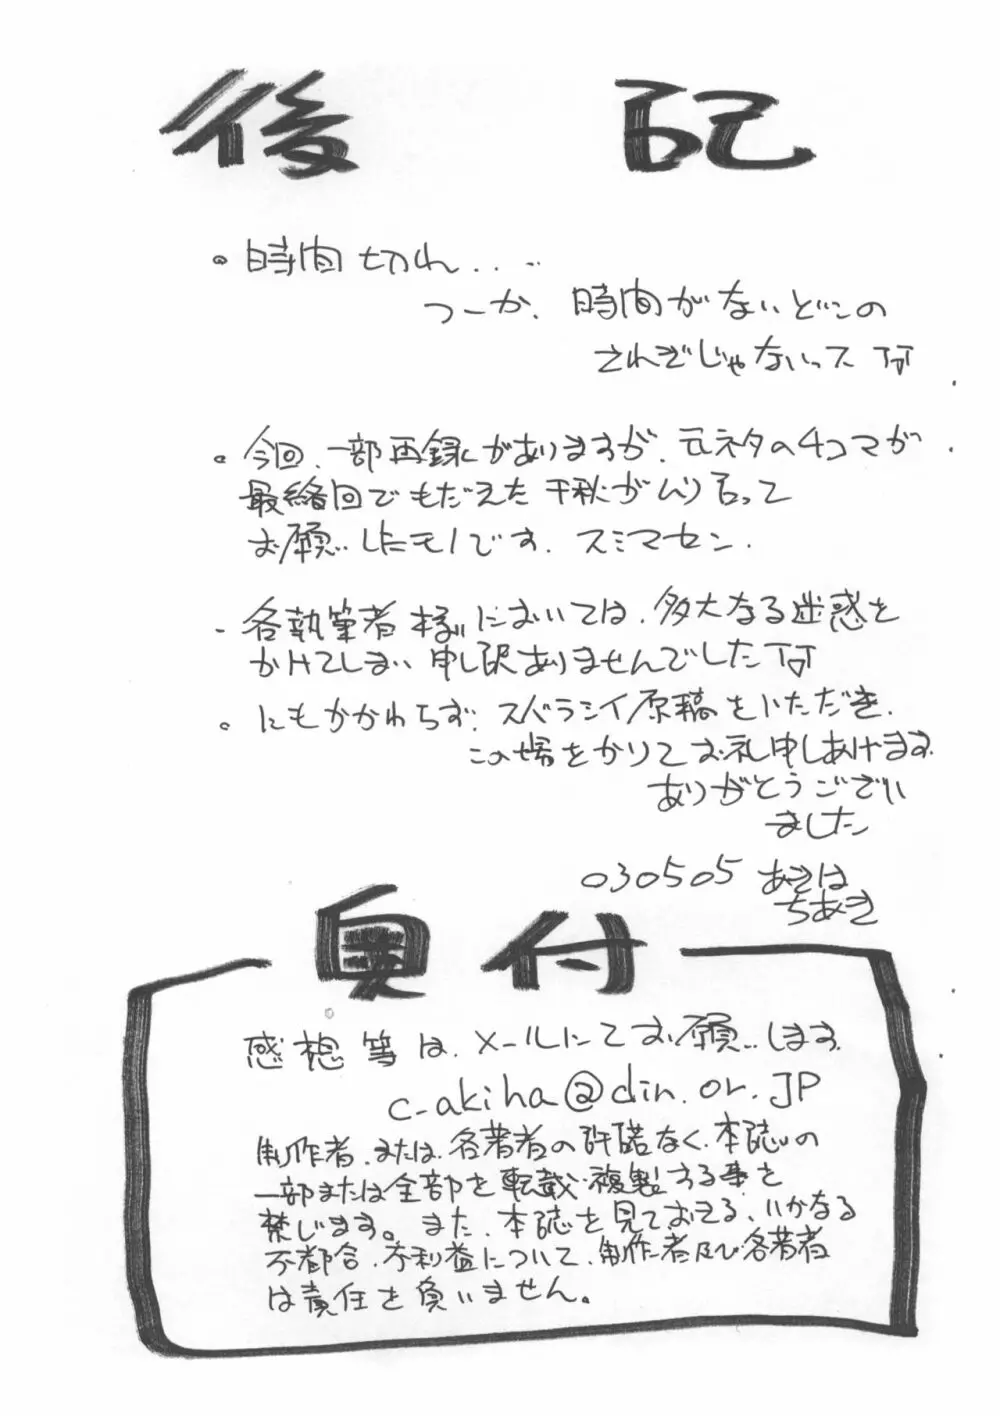 後記
。時間切れ. . . ..
つーか、時間がないどこの
さわぎじゃないっス TдT
。今回、一部再録がありますが、元ネタの4コマが
最終回でもだえた千秋がムリ言って
お願いしたモノです。スミマセン.
・各執筆者様においては、多大なる迷惑を
かけてしまい申し訳ありませんでした TдT
。にもかかわらず、スバラシイ原稿をいただき、
この場をかりてお礼申しあげます
ありがとうござい
ました
030505 あきは
ちあき
奥付
感想等は、メールにてお願いします
c-akiha@din.or.JP
制作者、または、各著者の許諾なく、本誌の
一部または全部を転載・複製する事を
禁じます。また、本誌を見ておきる、いかなる
不都合、不利益について、制作者及び各著者
は責任を負いません。